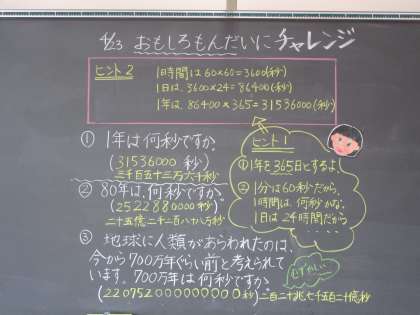 4/23 おもしろもんだいにチャレンジ
ヒント2
1時間は60×60=3600(秒)
1日は、3600×24=86400(秒)
1年は、86400×365=31536000(秒)
① 1年は何秒ですか。
(31536000 秒)
三千百五十三万六千秒
② 80年は、何秒ですか。
(2522880000秒)
二十五億二千二百八十八万秒
③ 地球に人類があらわれたのは、
今から700万年ぐらい前と考えられて
います。700万年は何秒ですか。
(220752000000000秒)二百二十兆七千五百二十億秒
ヒント1
①1年を365日とするよ。
②1分は60秒だから、
1時間は、何秒かな。
1日は24時間だから
むずかしい